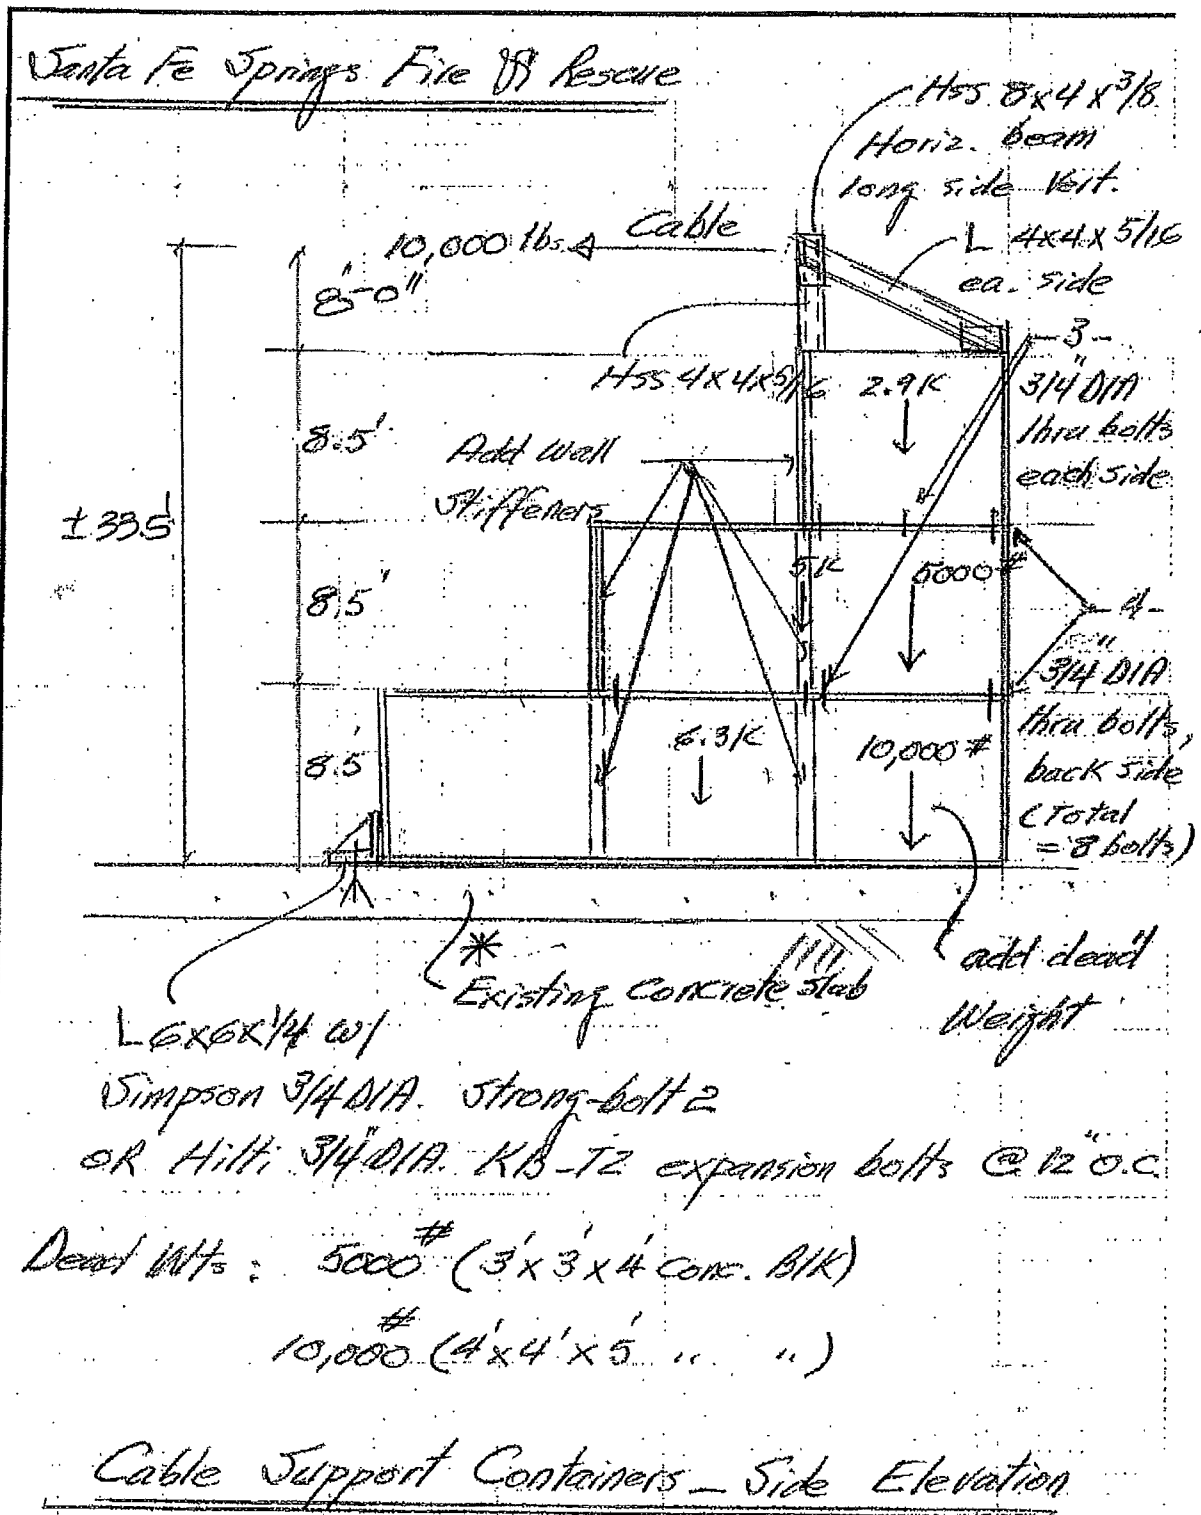 Santa Fe Springs Fire & Rescue
HSS 8x4x3/8
Horiz. beam
long side Vert.
Cable
10,000 lbs.
L 4x4x5/16
ea. side
8'-0"
-3-
HSS 4x4x5/16
2.9K
3/4" DIA
thru bolts
each side
8.5'
Add Wall
Stiffeners
±33.5'
5K
5000#
8.5'
-4-
3/4" DIA
thru bolts,
back side
(Total
= 8 bolts)
6.3K
10,000#
8.5'
*
Existing Concrete Slab
add dead
Weight
L6x6x1/4 w/
Simpson 3/4 DIA. Strong-bolt 2
OR Hilti 3/4" DIA. KB-TZ expansion bolts @ 12" O.C.
Dead Wts: 5000# (3'x3'x4' Conc. Blk)
10,000# (4'x4'x5' " ")
Cable Support Containers - Side Elevation